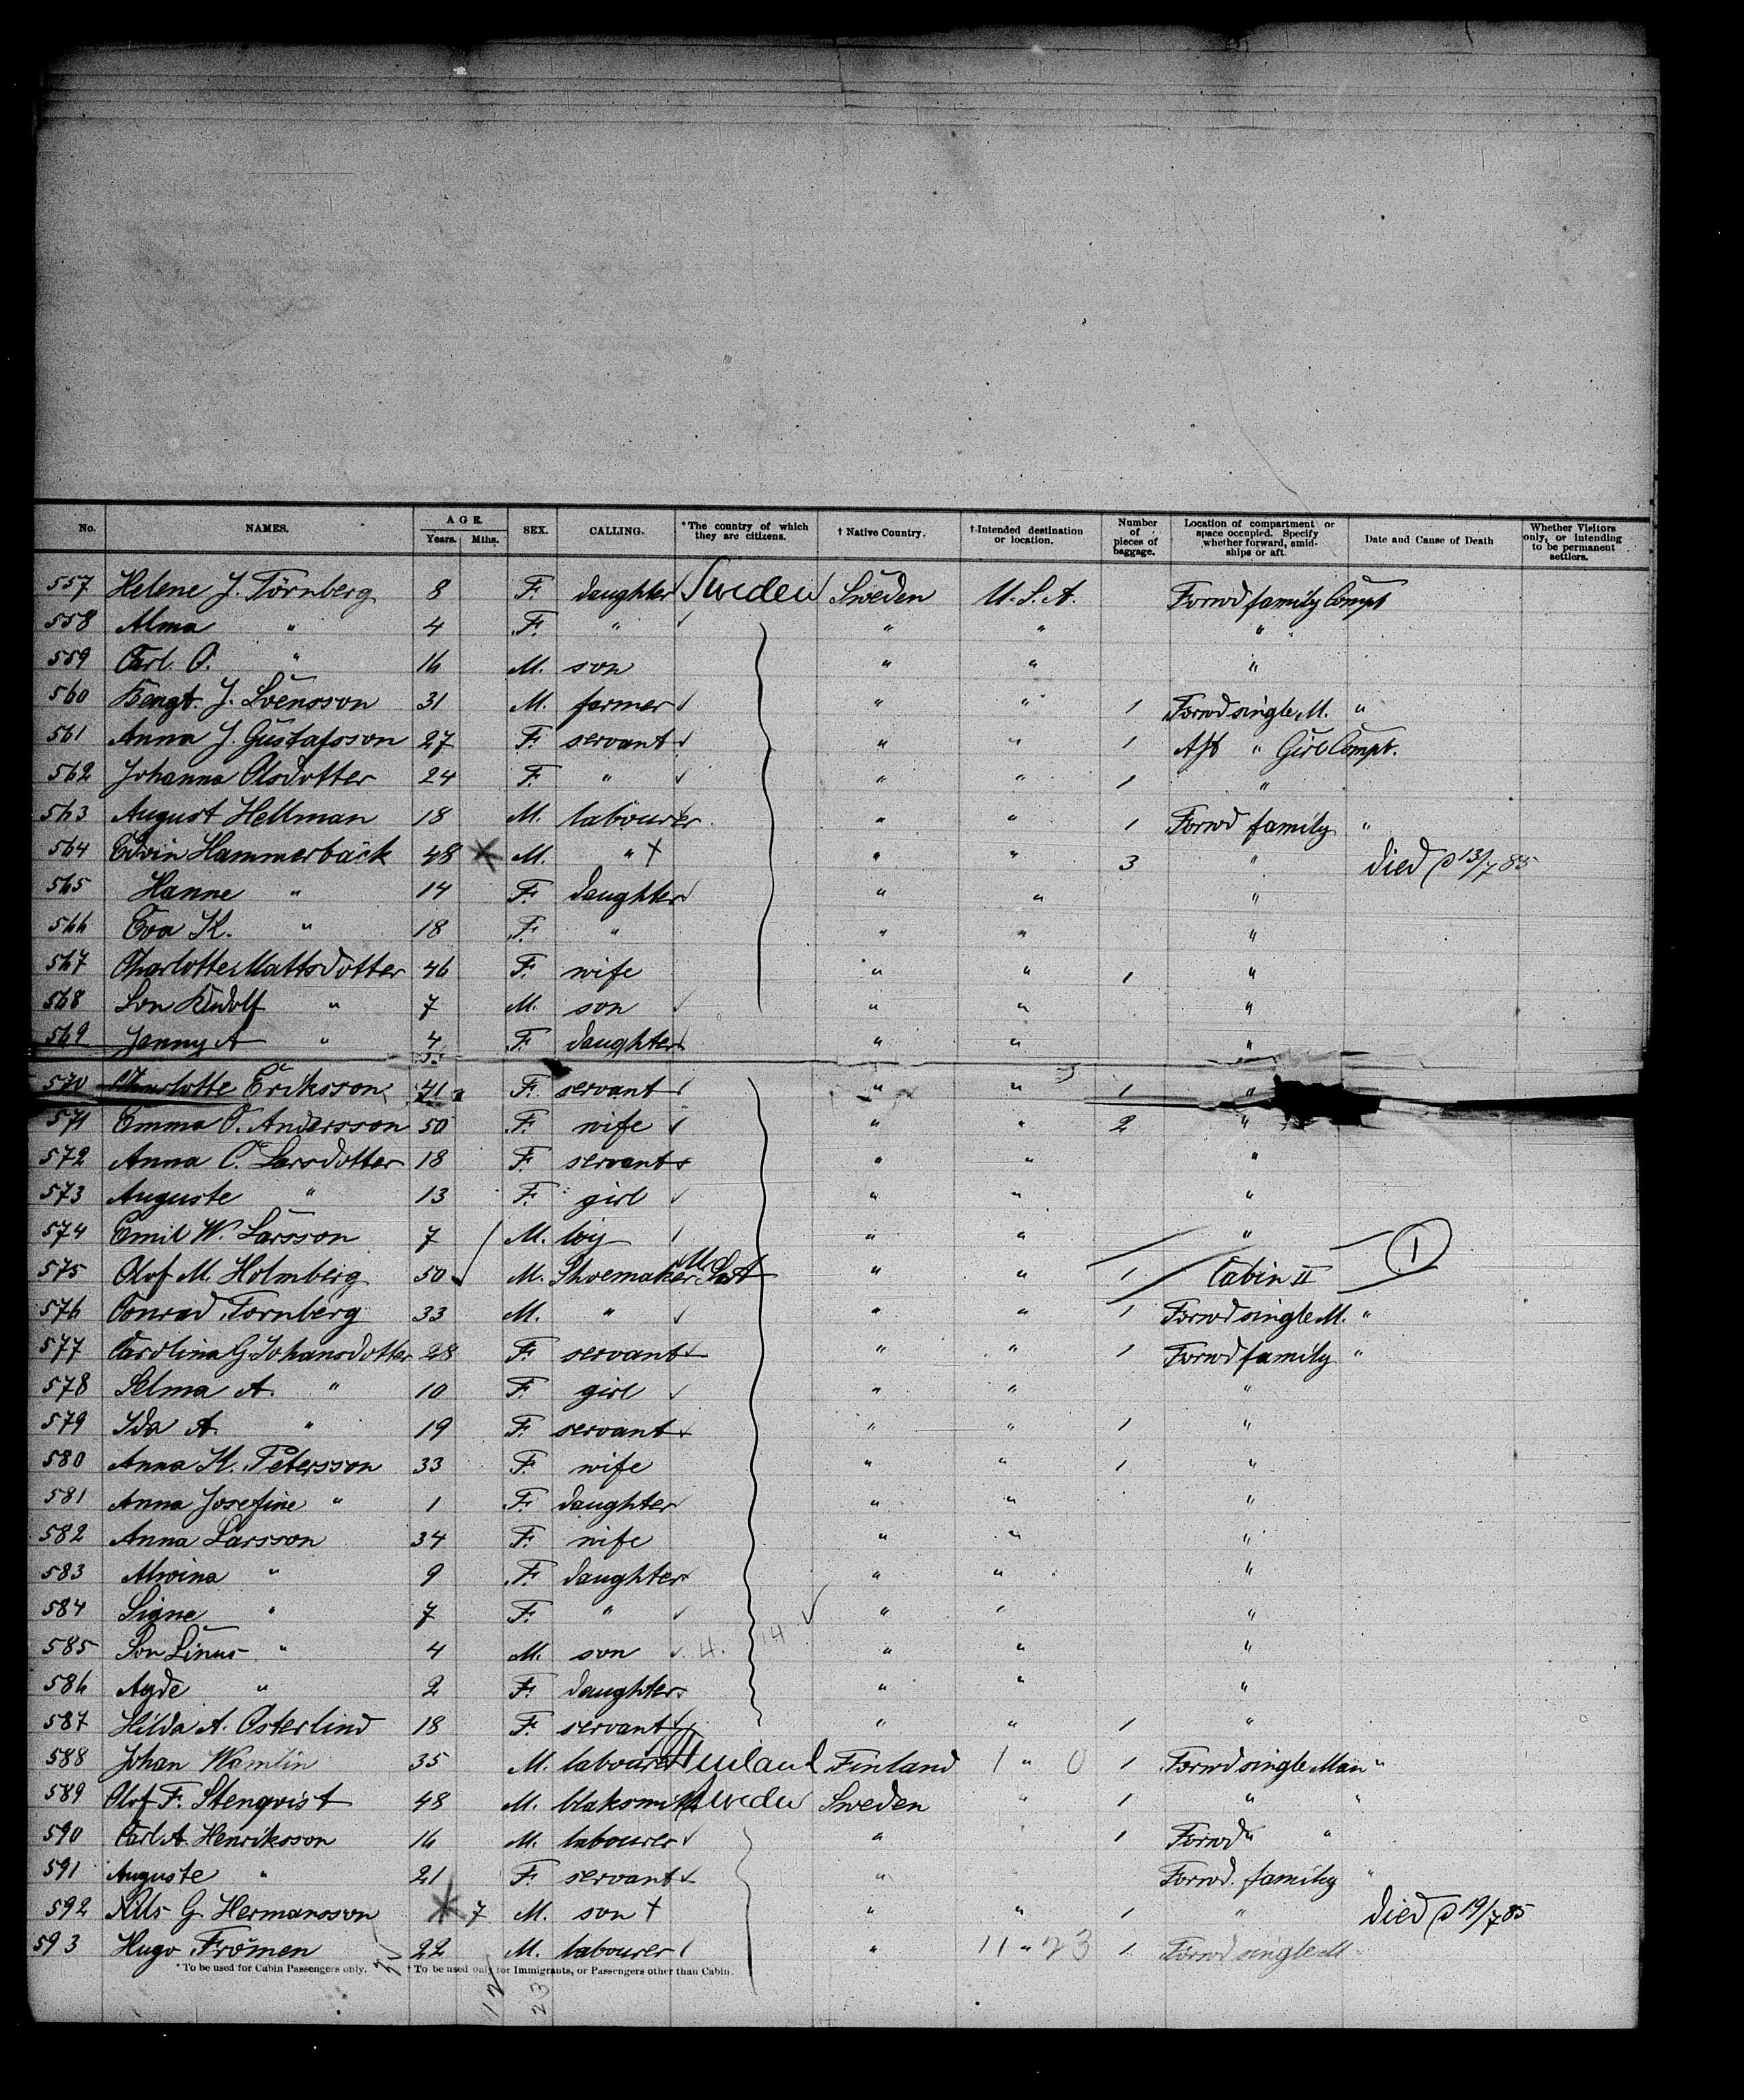 No. NAMES. AGE. Years. Mths. SEX. CALLING. *The country of which they are citizens. † Native Country. † Intended destination or location. Number of pieces of baggage. Location of compartment or space occupied. Specify whether forward, amidships or aft. Date and Cause of Death Whether Visitors only, or intending to be permanent settlers.
557 Helene J. Törnberg 8 F. daughter Sweden Sweden U.S.A. Forwd family Compt
558 Alma " 4 F. " " " "
559 Carl O. " 16 M. son " " "
560 Bengt J. Svensson 31 M. farmer " " 1 Forwd single M. "
561 Anna J. Gustafsson 27 F. servant " " 1 Aft " Girl Compt.
562 Johanna Olsdotter 24 F. " " " 1 "
563 August Hellman 18 M. labourer " " 1 Forwd family "
564 Edvin Hammerbäck 48 M. " + " " 3 " died 13/7 85
565 Hanne " 14 F. daughter " " "
566 Eva K. " 18 F. " " " "
567 Charlotte Mattsdotter 46 F. wife " " 1 "
568 Son Rudolf " 7 M. son " " "
569 Jenny A " 4 F. daughter " " "
570 Charlotte Eriksson F. servant " " 1 "
571 Emma O. Andersson 50 F. wife " " 2 "
572 Anna C. Larsdotter 18 F. servant " " "
573 Auguste " 13 F. girl " " "
574 Emil W. Larsson 7 M. boy " " "
575 Olof M. Holmberg 50 M. Shoemaker " " 1 Cabin II 1
576 Conrad Tornberg 33 M. " " " 1 Forwd single M. "
577 Carolina G. Johansdotter 28 F. servant " " 1 Forwd family "
578 Selma A. " 10 F. girl " " "
579 Ida A. " 19 F. servant " " 1 "
580 Anna K. Petersson 33 F. wife " " 1 "
581 Anna Josefine " 1 F. daughter " " "
582 Anna Larsson 34 F. wife " " "
583 Alwina " 9 F. daughter " " "
584 Signe " 7 F. " " " "
585 Son Linus " 4 M. son 4. 14 " " "
586 Agde " 2 F. daughter " " "
587 Hilda A. Osterlind 18 F. servant " " 1 "
588 Johan Wamlin 35 M. labourer Finland Finland 1 " 0 1 Forwd single Man "
589 Olof F. Stenqvist 48 M. blaksmith Sweden Sweden " 1 " "
590 Carl A. Henriksson 16 M. labourer " 1 Forwd " "
591 Auguste " 21 F. servant " Forwd. family "
592 Nils G. Hermansson 7 M. son + " " 1 " died 19/7 85
593 Hugo Frömen 22 M. labourer " 11 " 23 1 Forwd single M
* To be used for Cabin Passengers only. † To be used only for Immigrants, or Passengers other than Cabin.
12 23